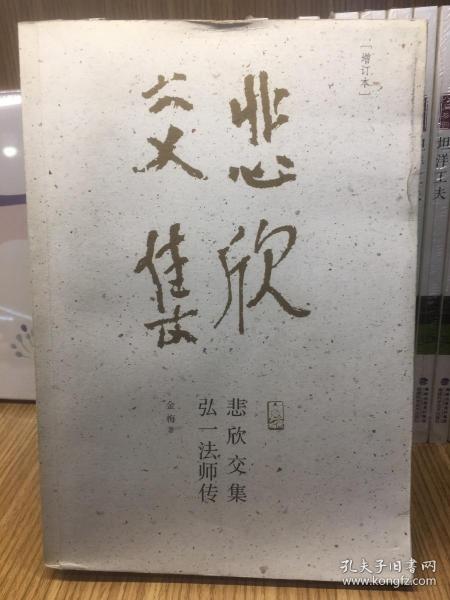 [增订本]
悲欣
交集
悲欣交集
弘一法师传
金梅 著
坦洋工夫
孔夫子旧书网
www.kongfz.com